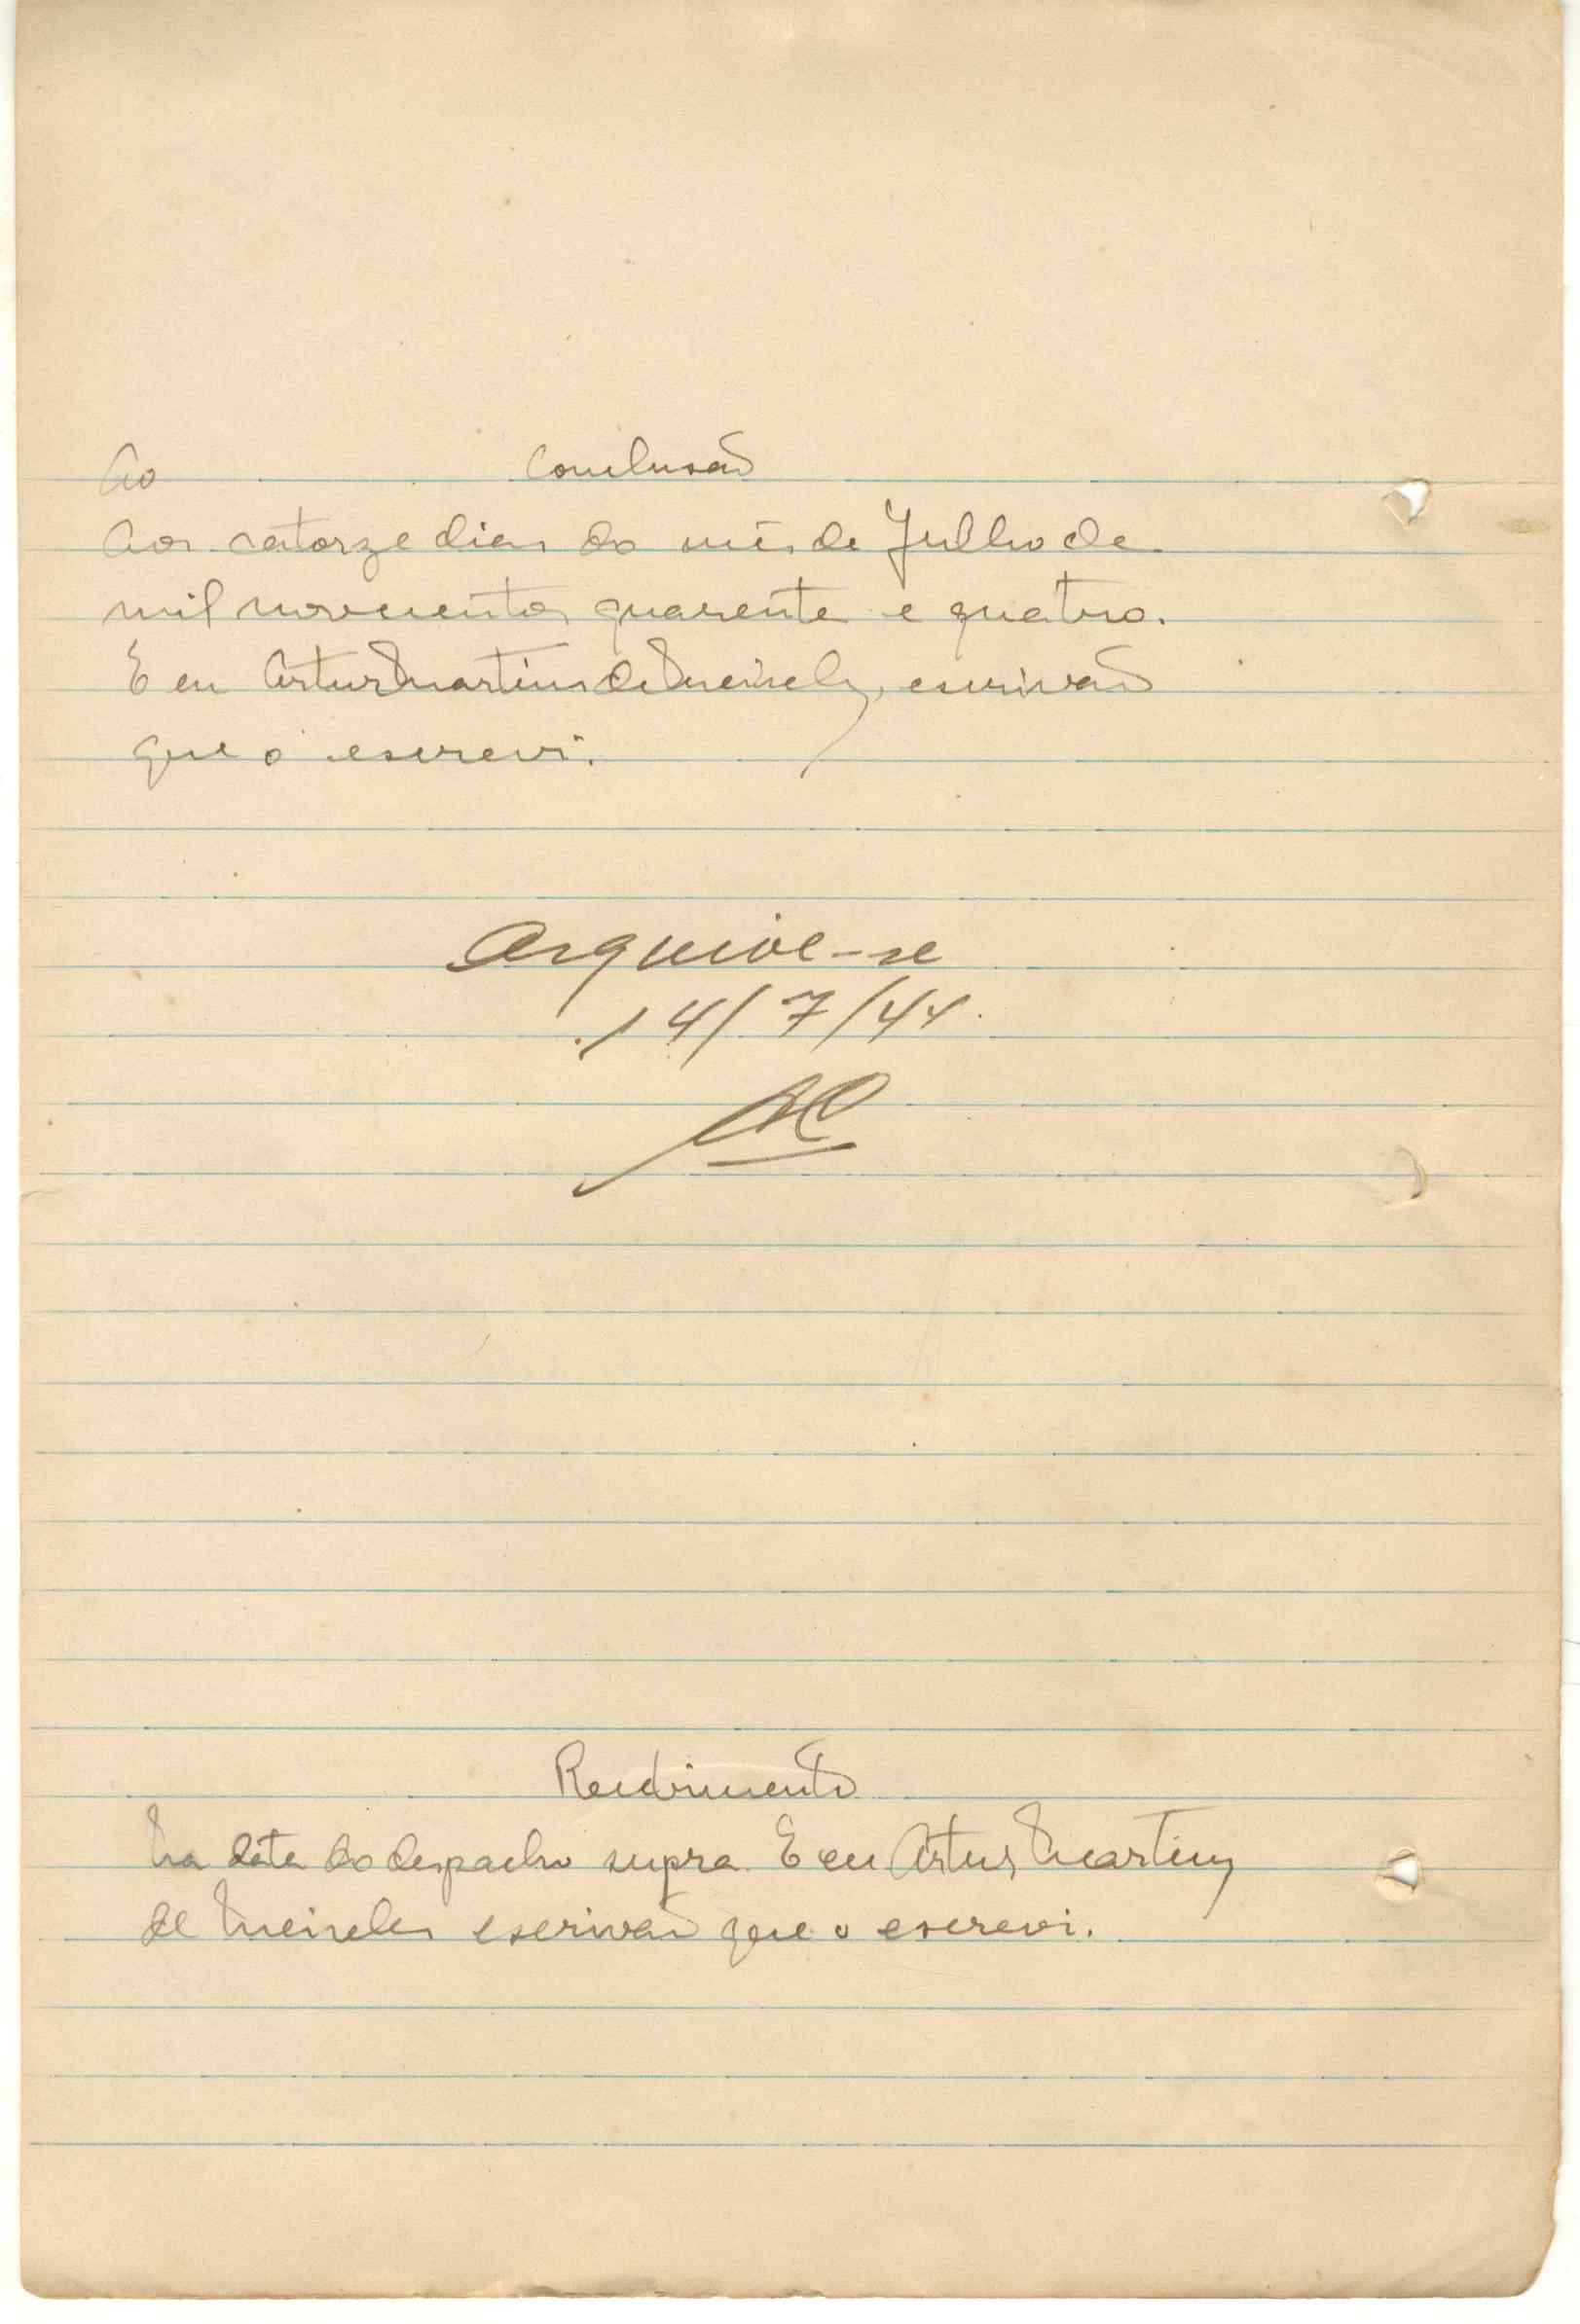 Ao Conclusão
Aos catorze dias do mês de Julho de
mil novecentos quarenta e quatro.
E eu Artur Martins de Meireles, escrivão
que o escrevi.
Arquive-se
14/7/44.
Recebimento
Na data do despacho supra. E eu Artur Martins
de Meireles escrivão que o escrevi.